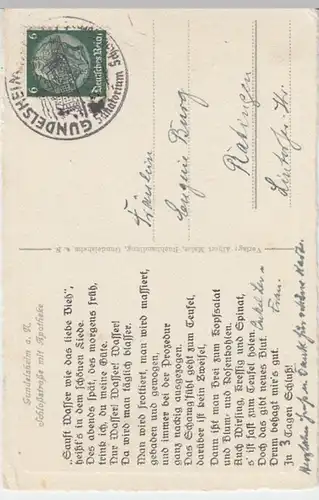 Gundelsheim a. N.
Schloßstraße mit Apotheke
„Sauft Wasser wie das liebe Vieh“,
heißt's in dem schönen Liede.
Des abends spät, des morgens früh,
trink ich, du meine Güte.
Nur Wasser! Wasser! Wasser!
Da wird man täglich blasser.
Man wird frottiert, man wird massiert,
gebaden und gewogen,
und immer bei der Prozedur
ganz nackig ausgezogen.
Das Schamgfühl geht zum Teufel,
darüber ist kein Zweifel,
Dann ißt man Brei zum Kopfsalat
Und Blum- und Rosenkohlen.
Auch Wirsing, Kressig und Spinat,
s' ist fast zum Teufel holen
Doch das gibt neues Blut.
Drum behagt mir's gut.
In 3 Tagen Schluß!
Herzlichen Gruß u. Dank für schöne Karte.
Verlag: Albert Maier, Buchhandlung, Gundelsheim a. N.
GUNDELSHEIM
Sanatorium
6 6
Deutsches Reich
Fräulein
Eugenie Burg
Ratingen